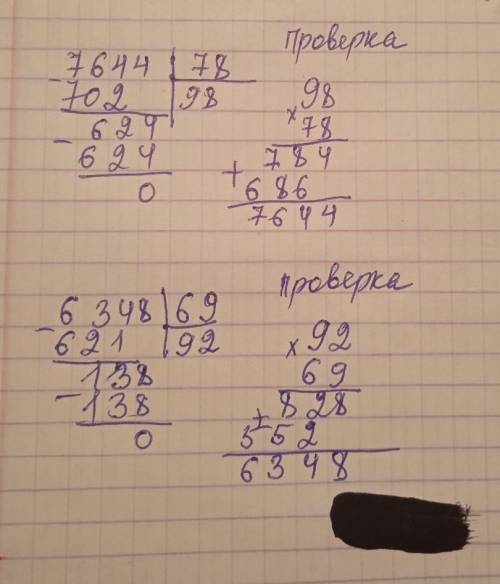 7644 | 78
- 702 | 98
- 624
624
0
Проверка
98
× 78
784
+ 686
7644
6348 | 69
- 621 | 92
138
- 138
0
проверка
× 92
69
828
+ 552
6348